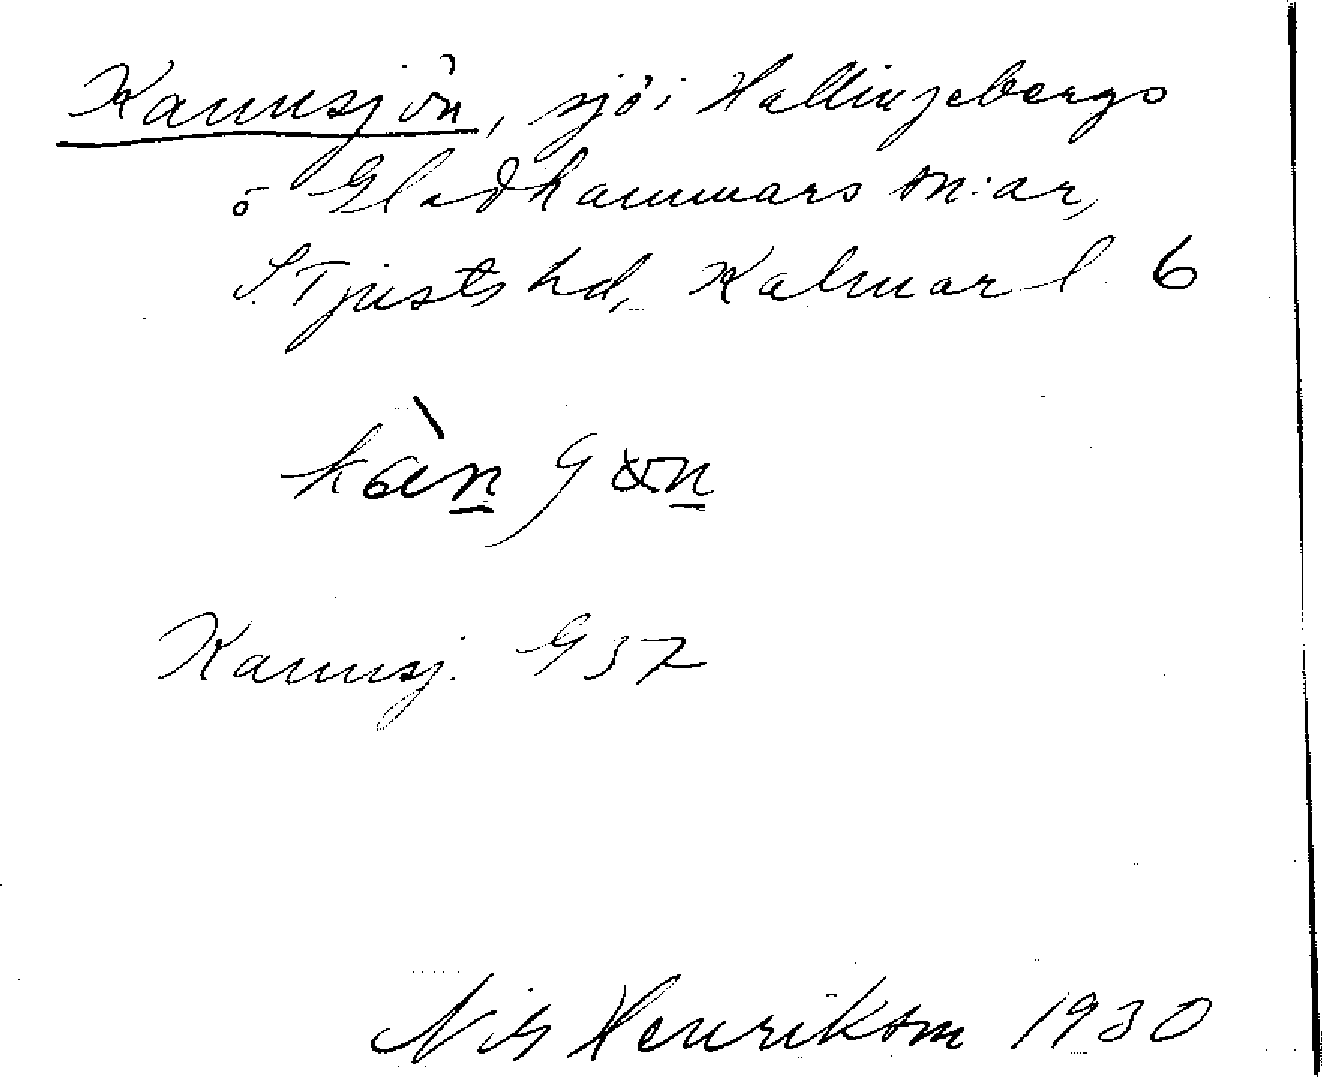 Kannsjön, sjö i Hallingebergs
o Gladhammars sn:ar,
S. Tjusts hd, Kalmar l 6
Kannsj. G 37
Nils Henrikson 1930